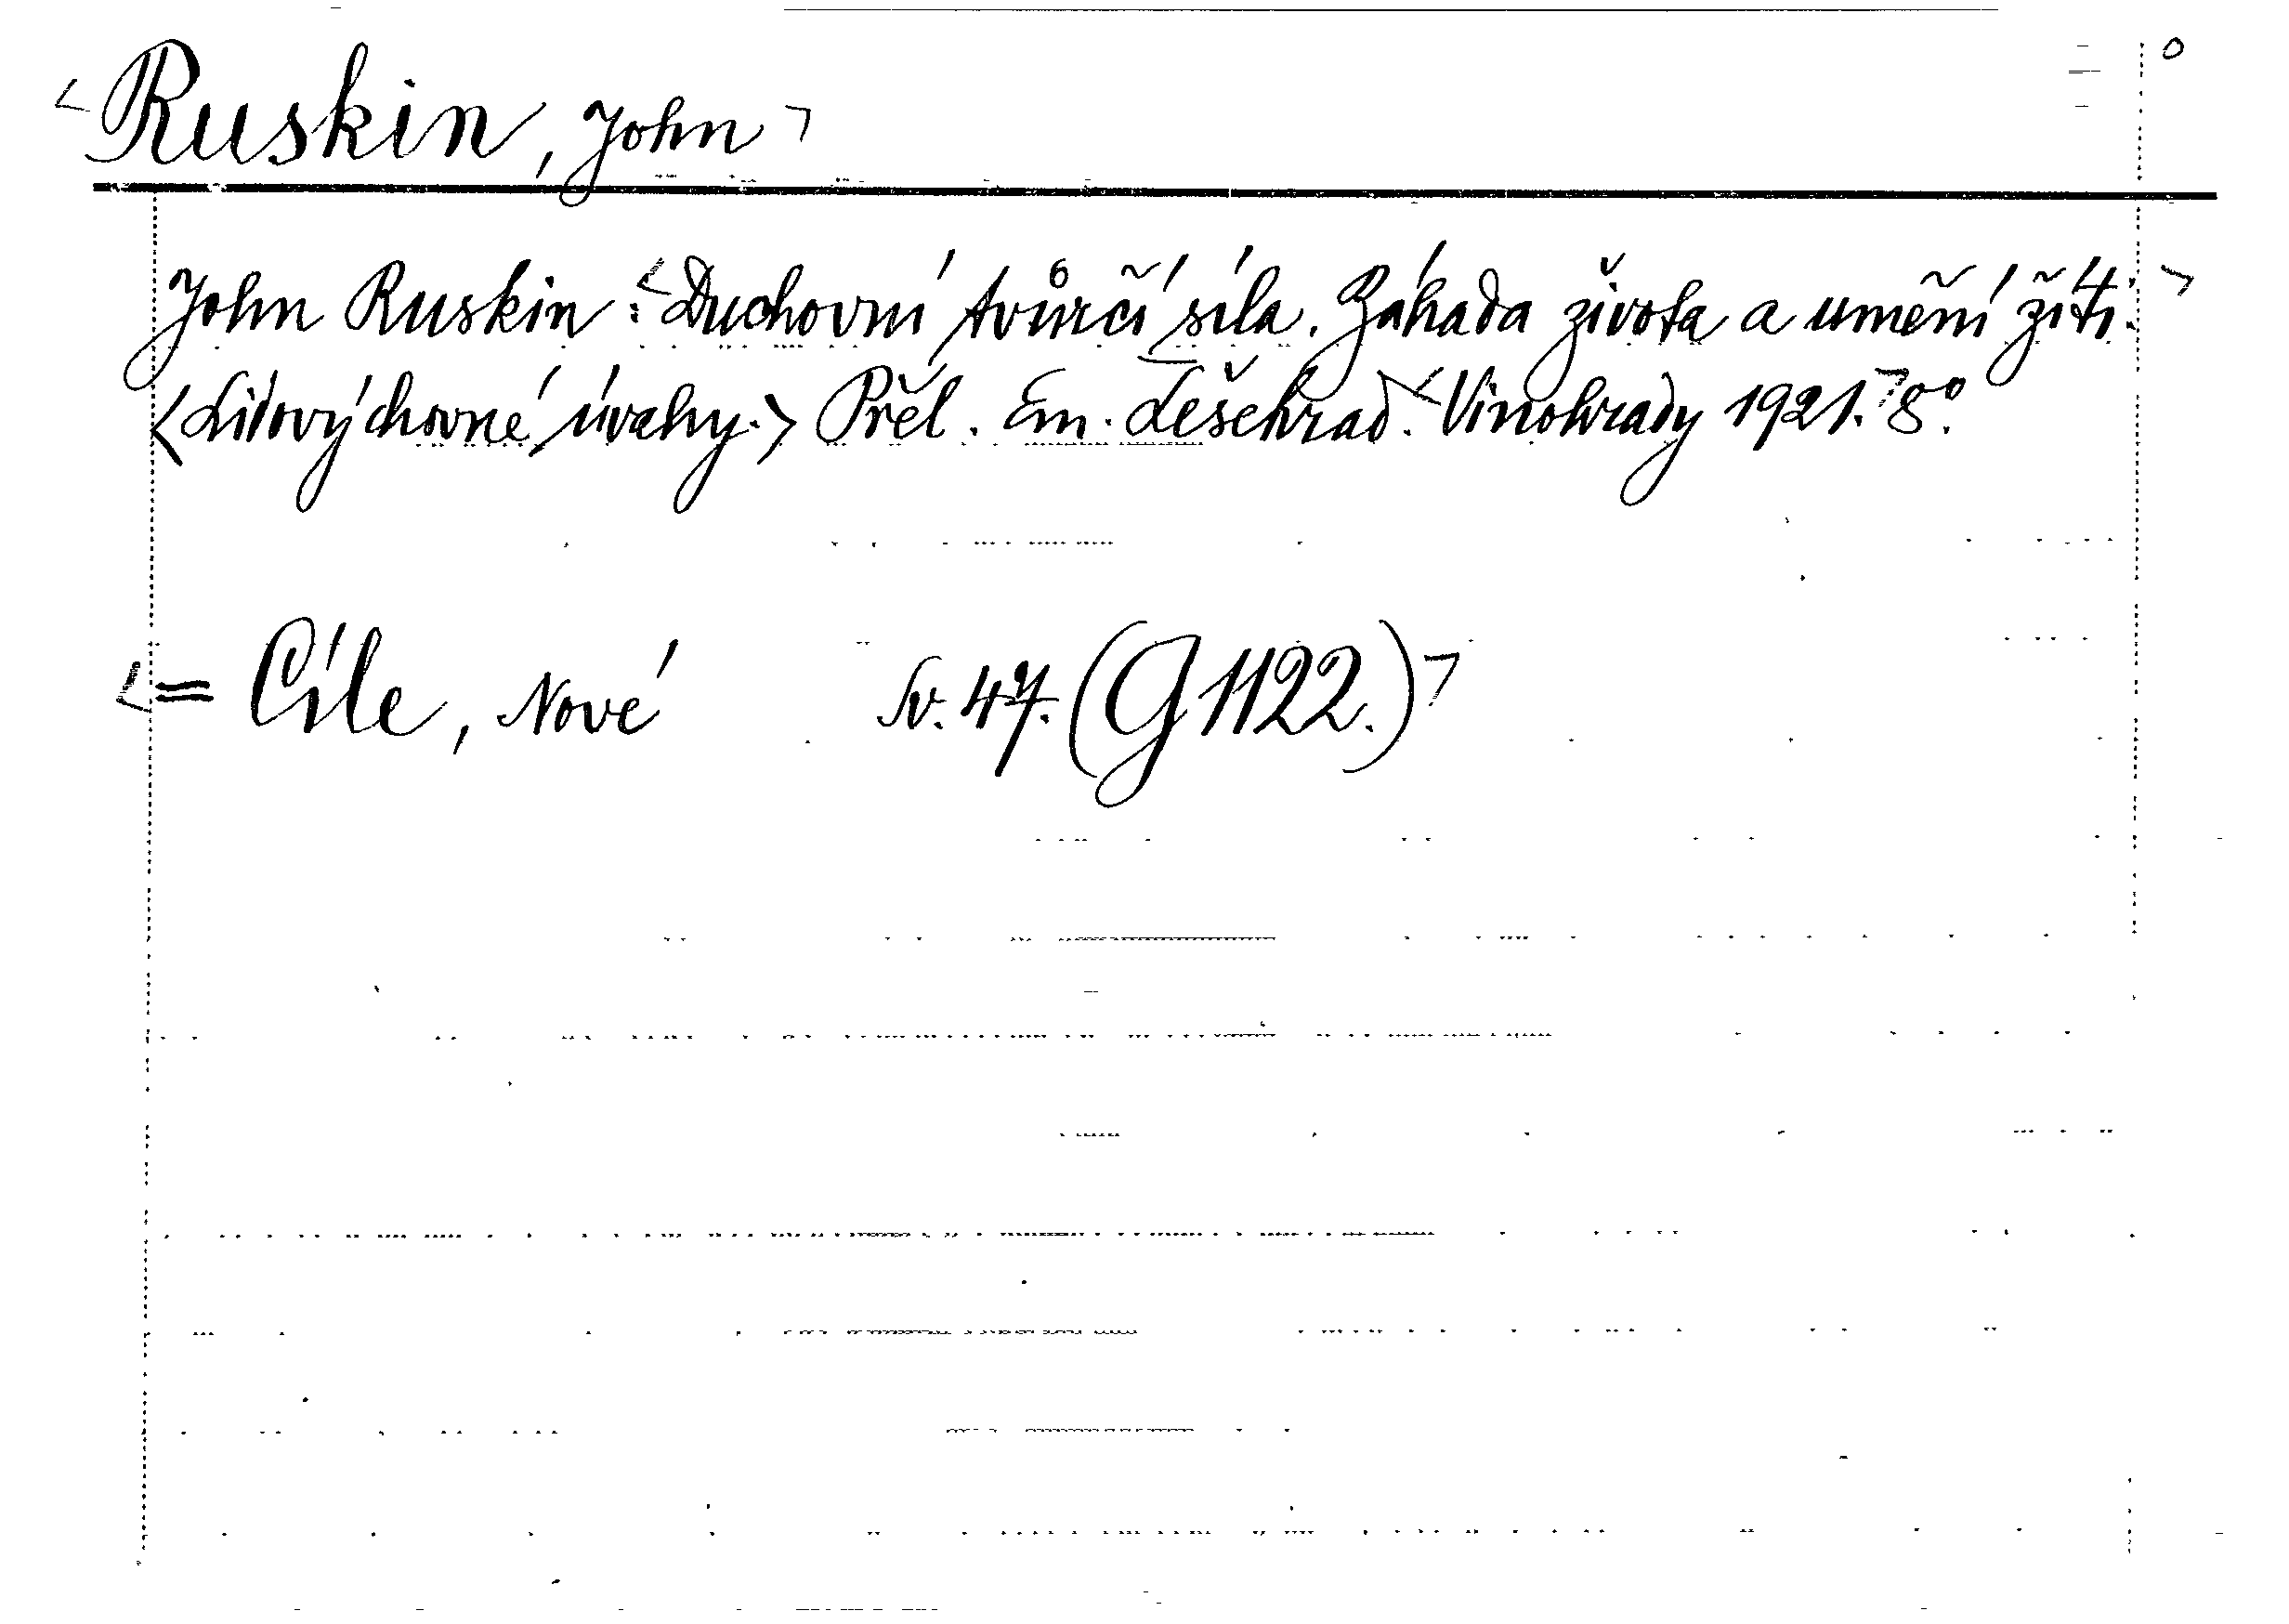 <Ruskin, John>
John Ruskin: <Duchovní tvůrčí síla. Záhada života a umění žíti.>
<Lidovýchovné úvahy.> Přel. Em. Lešehrad. <Vinohrady 1921.> 8°.
<= Cíle, Nové Sv. 47. (G 1122.)>